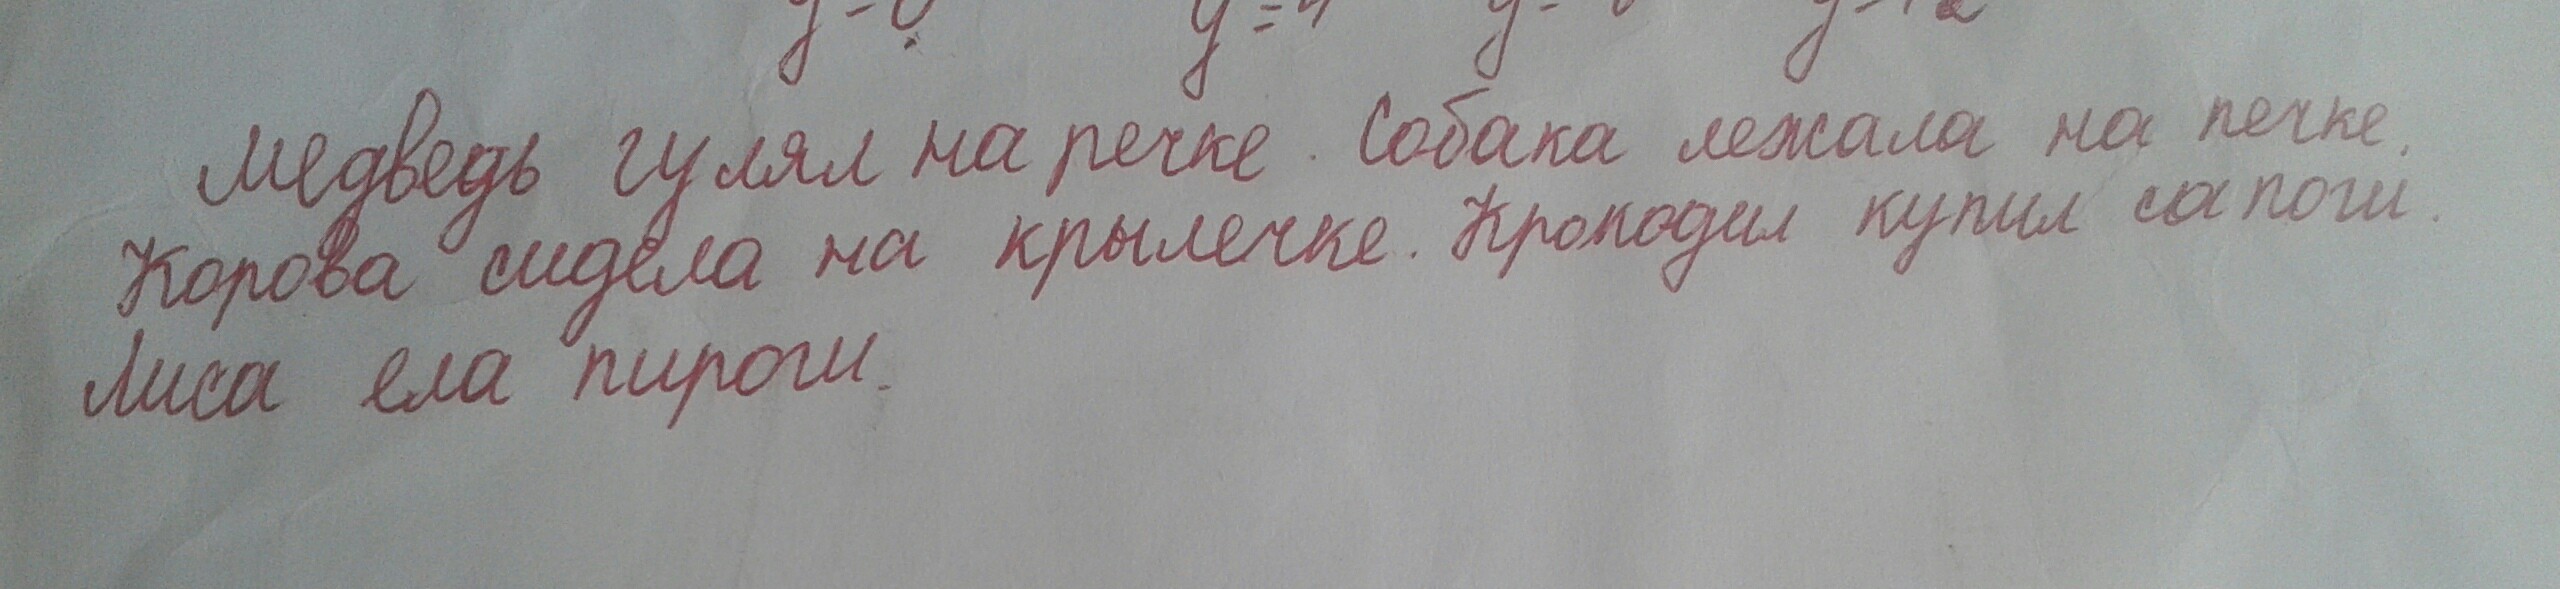 Медведь гулял на речке. Собака лежала на печке.
Корова сидела на крылечке. Крокодил купил сапоги.
Лиса ела пироги.